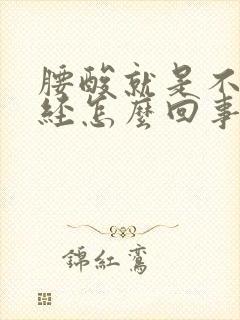 腰酸就是不
经怎麼回事
錦紅鸞